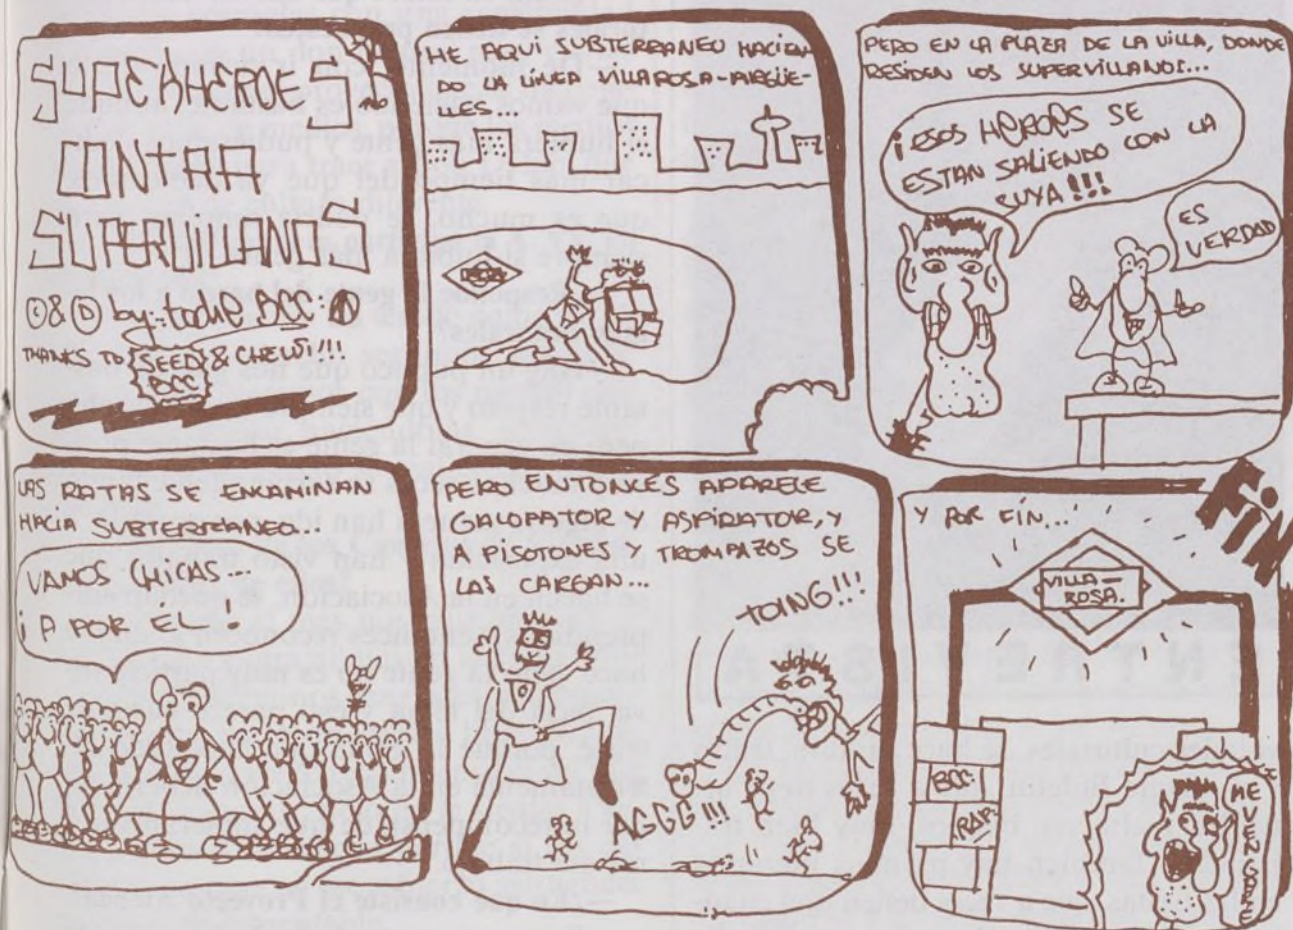 SUPERHEROES
CONTRA
SUPERVILLANOS
©&Ⓓ by: toche BCC:
THANKS TO SEED & CHEWI!!!
BCC
HE AQUÍ SUBTERRANEO HACIEN-
DO LA LÍNEA VILLAROSA-ARGÜE-
LLES...
PERO EN LA PLAZA DE LA VILLA, DONDE
RESIDEN LOS SUPERVILLANOS...
¡ESOS HEROES SE
ESTAN SALIENDO CON LA
SUYA!!!
ES
VERDAD
LAS RATAS SE ENCAMINAN
HACIA SUBTERRANEO
VAMOS CHICAS...
¡A POR ÉL!
PERO ENTONCES APARECE
CHALOPATOR Y ASPIRATOR, Y
A PISOTONES Y TROMPAZOS SE
LAS CARGAN...
TOING!!!
AGGG!!!
Y POR FIN...
FIN
VILLA-
ROSA.
BCC:
RAP
ME
VENGARÉ